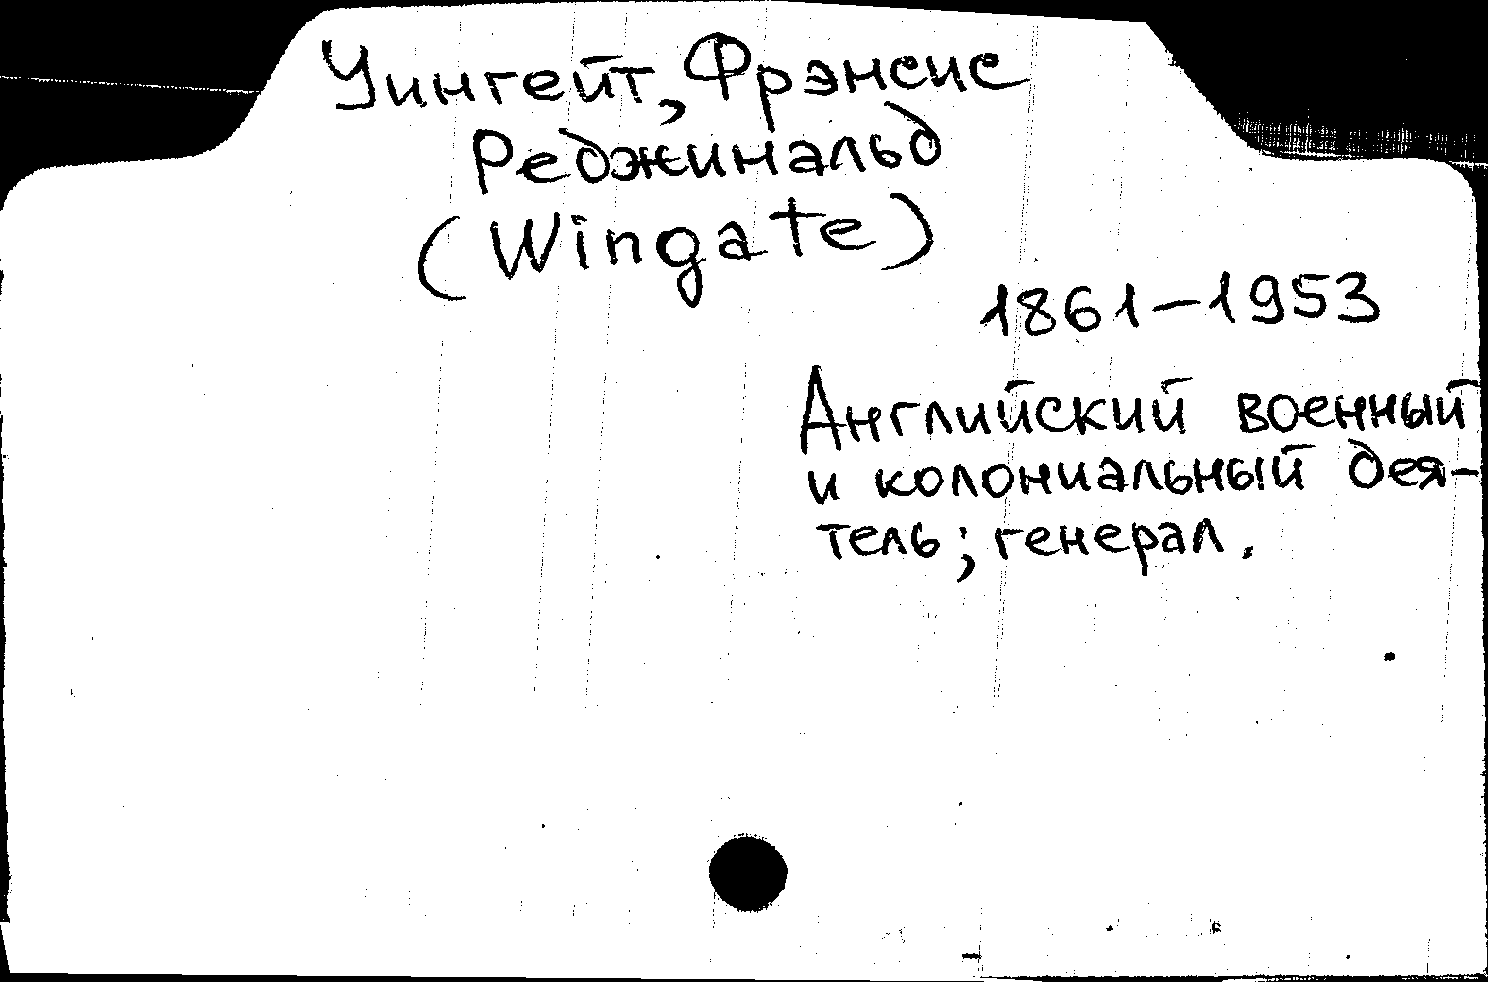 Уингейт, Фрэнсис
Реджинальд
(Wingate)
1861–1953
Английский военный
и колониальный дея-
тель; генерал.